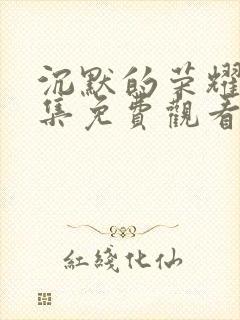 沉默的荣耀
集免費觀看
紅綫化仙